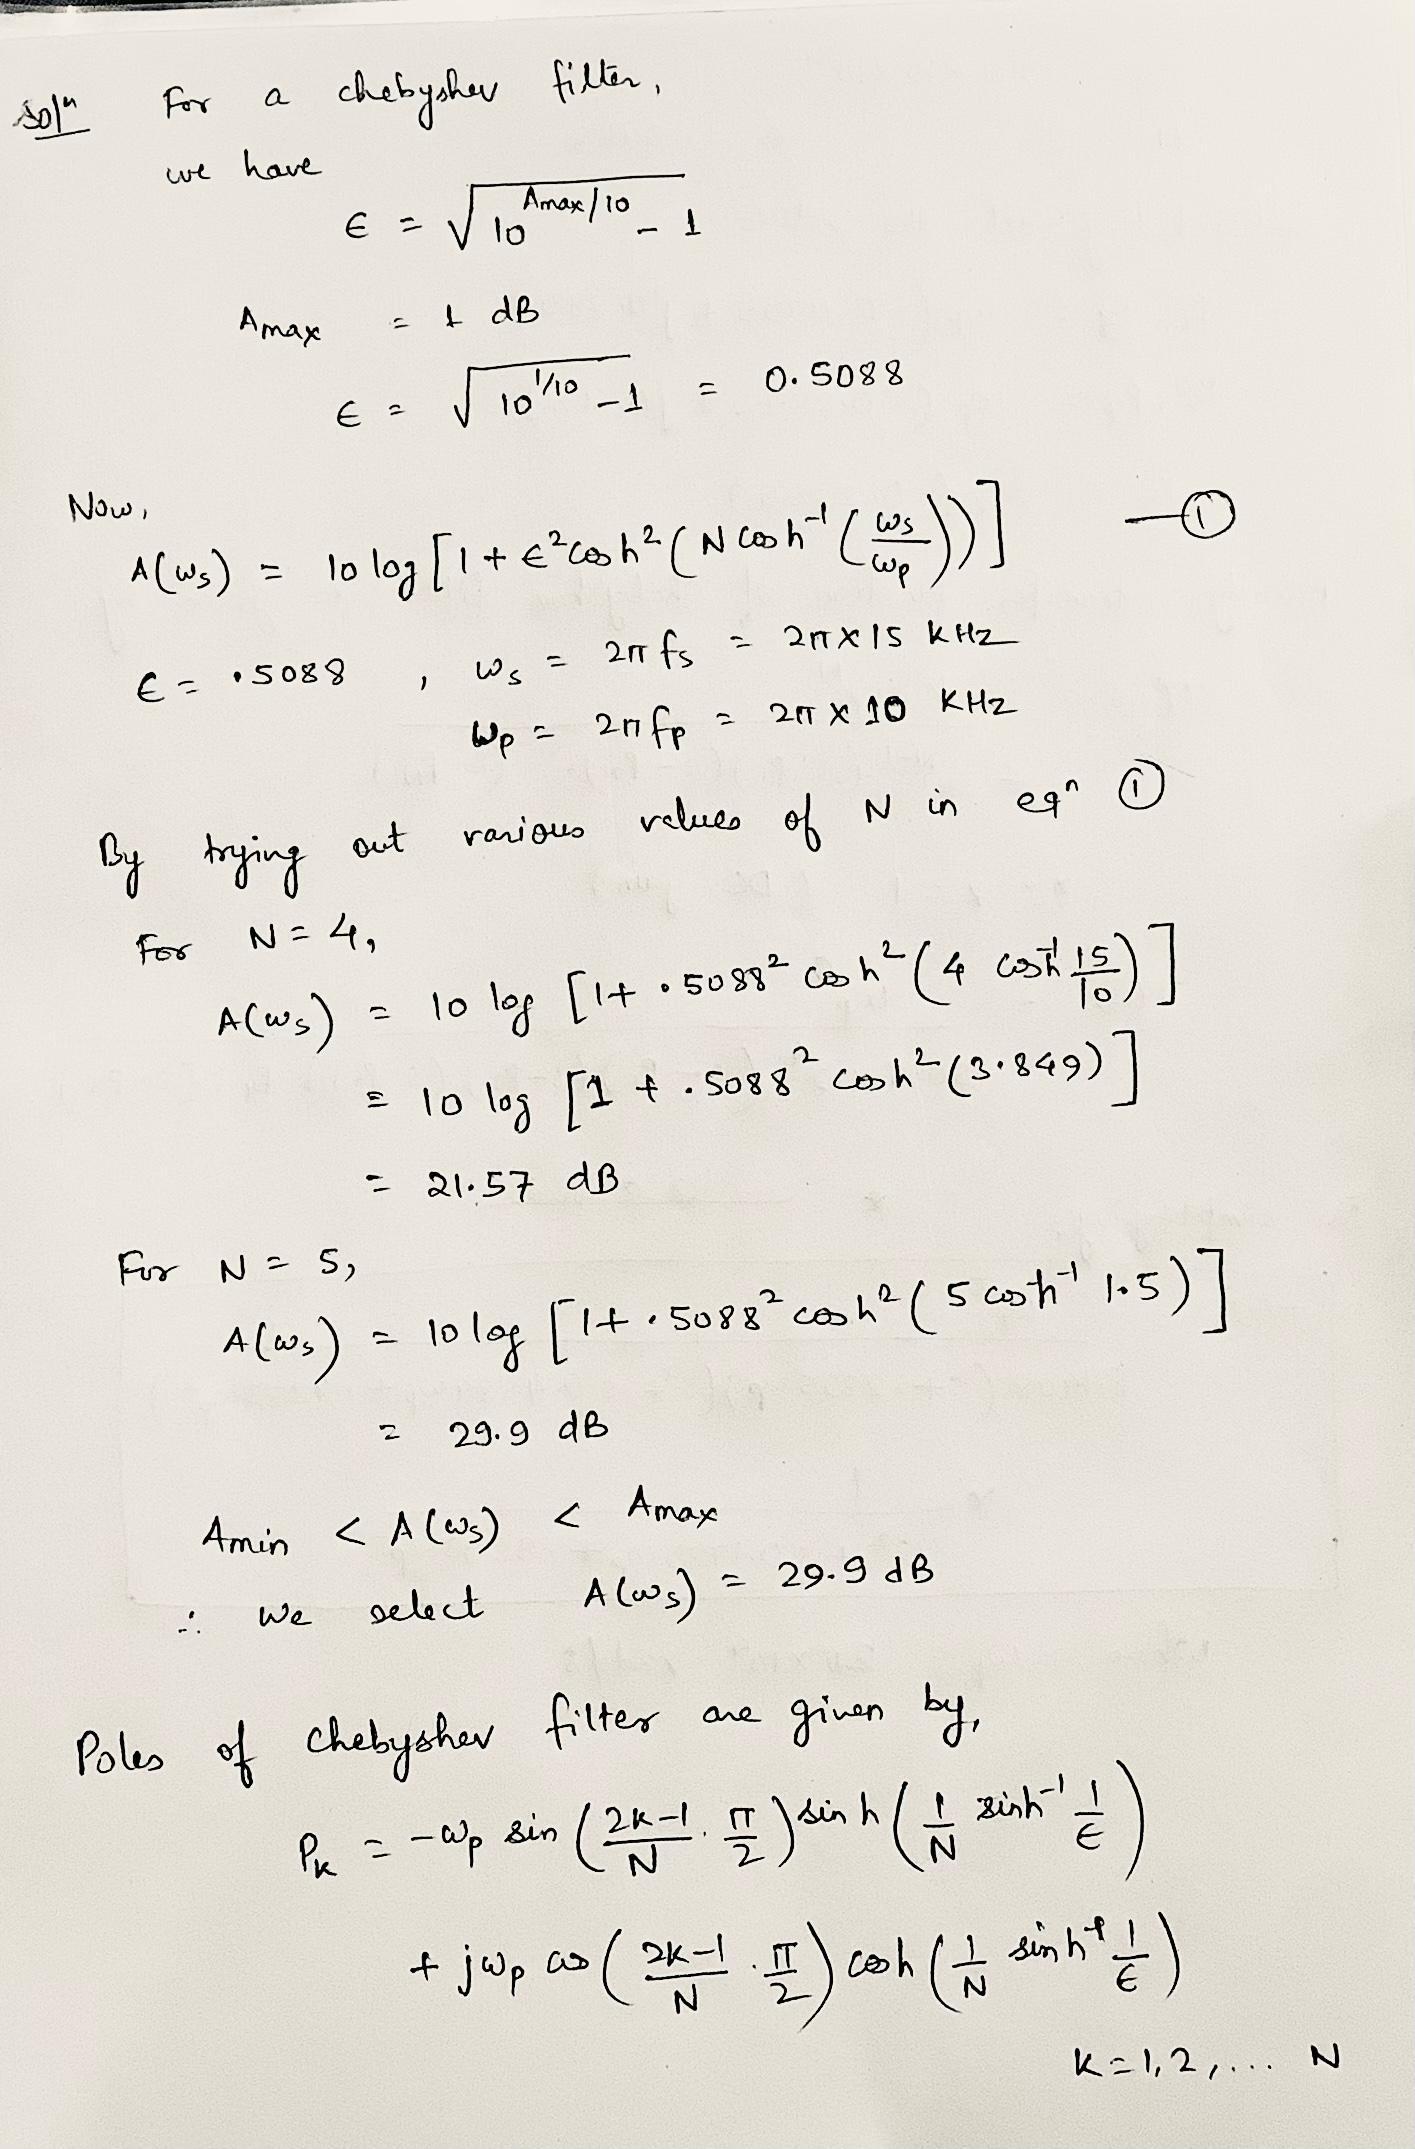 Solⁿ For a chebyshev filter,
we have
ϵ = √(10^(Amax/10) - 1)
Amax = 1 dB
ϵ = √(10^(1/10) - 1) = 0.5088
Now,
A(ωs) = 10 log [1 + ϵ² cosh² (N cosh⁻¹ (ωs/ωp))] — ①
ϵ = .5088 , ωs = 2π fs = 2π × 15 KHz
ωp = 2π fp = 2π × 10 KHz
By trying out various values of N in eqⁿ ①
For N = 4,
A(ωs) = 10 log [1 + .5088² cosh² (4 cosh⁻¹ 15/10)]
= 10 log [1 + .5088² cosh² (3.849)]
= 21.57 dB
For N = 5,
A(ωs) = 10 log [1 + .5088² cosh² (5 cosh⁻¹ 1.5)]
= 29.9 dB
Amin < A(ωs) < Amax
∴ We select A(ωs) = 29.9 dB
Poles of chebyshev filter are given by,
Pk = -ωp sin ((2k-1)/N · π/2) sinh (1/N sinh⁻¹ 1/ϵ)
+ jωp cos ((2k-1)/N · π/2) cosh (1/N sinh⁻¹ 1/ϵ)
K = 1, 2, ... N